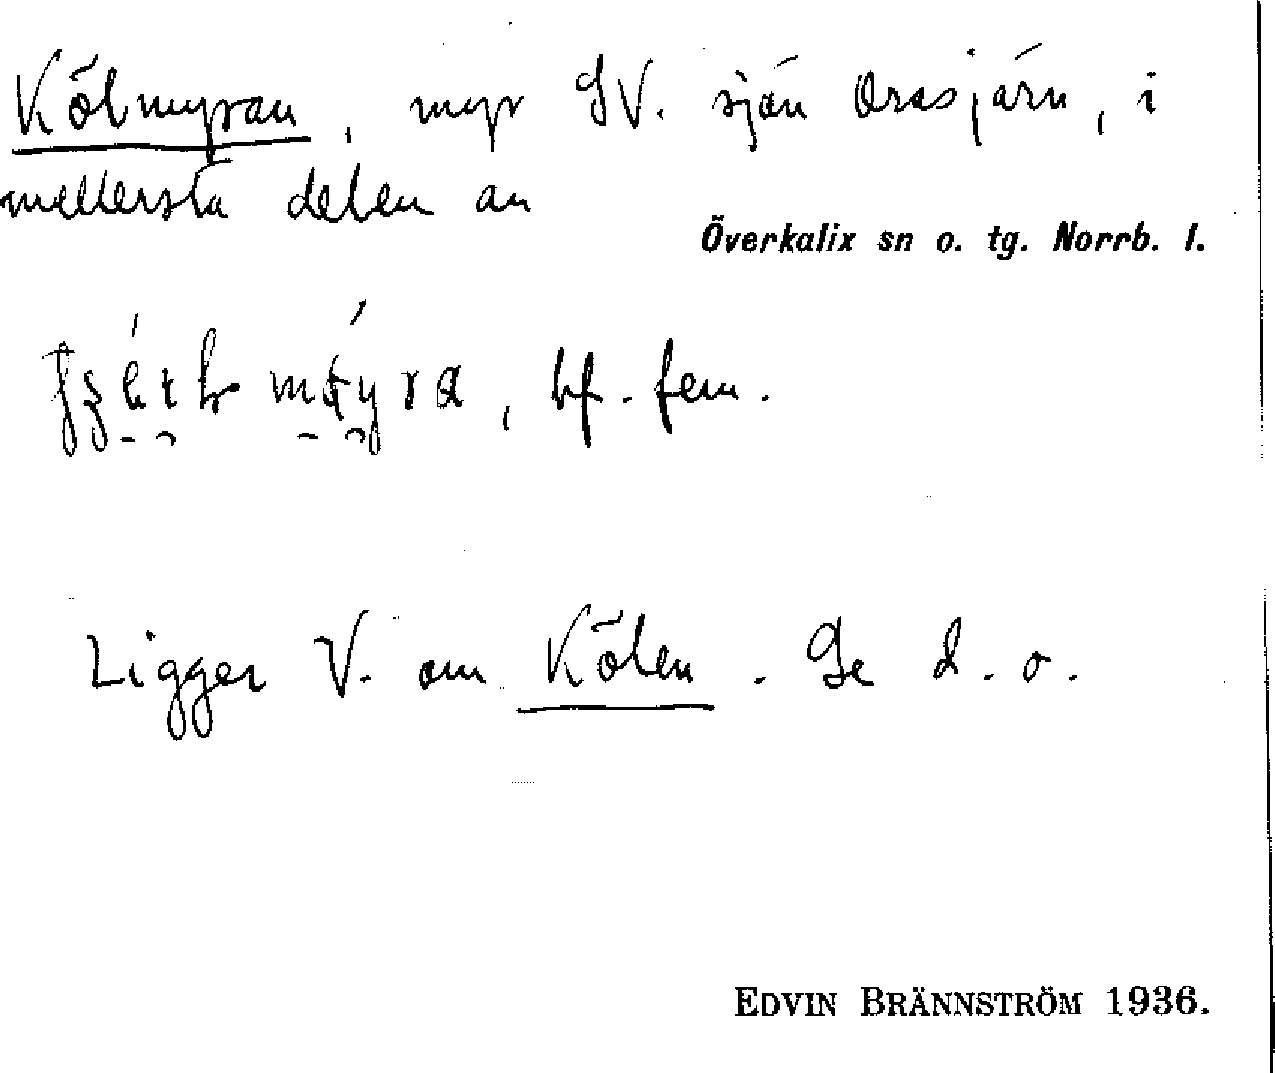 Kölmyran, myr SV. sjön Orasjärv, i
mellersta delen av
Överkalix sn o. tg. Norrb. l.
, bf. fem.
Ligger V. om Kölen. Se d. o.
EDVIN BRÄNNSTRÖM 1936.